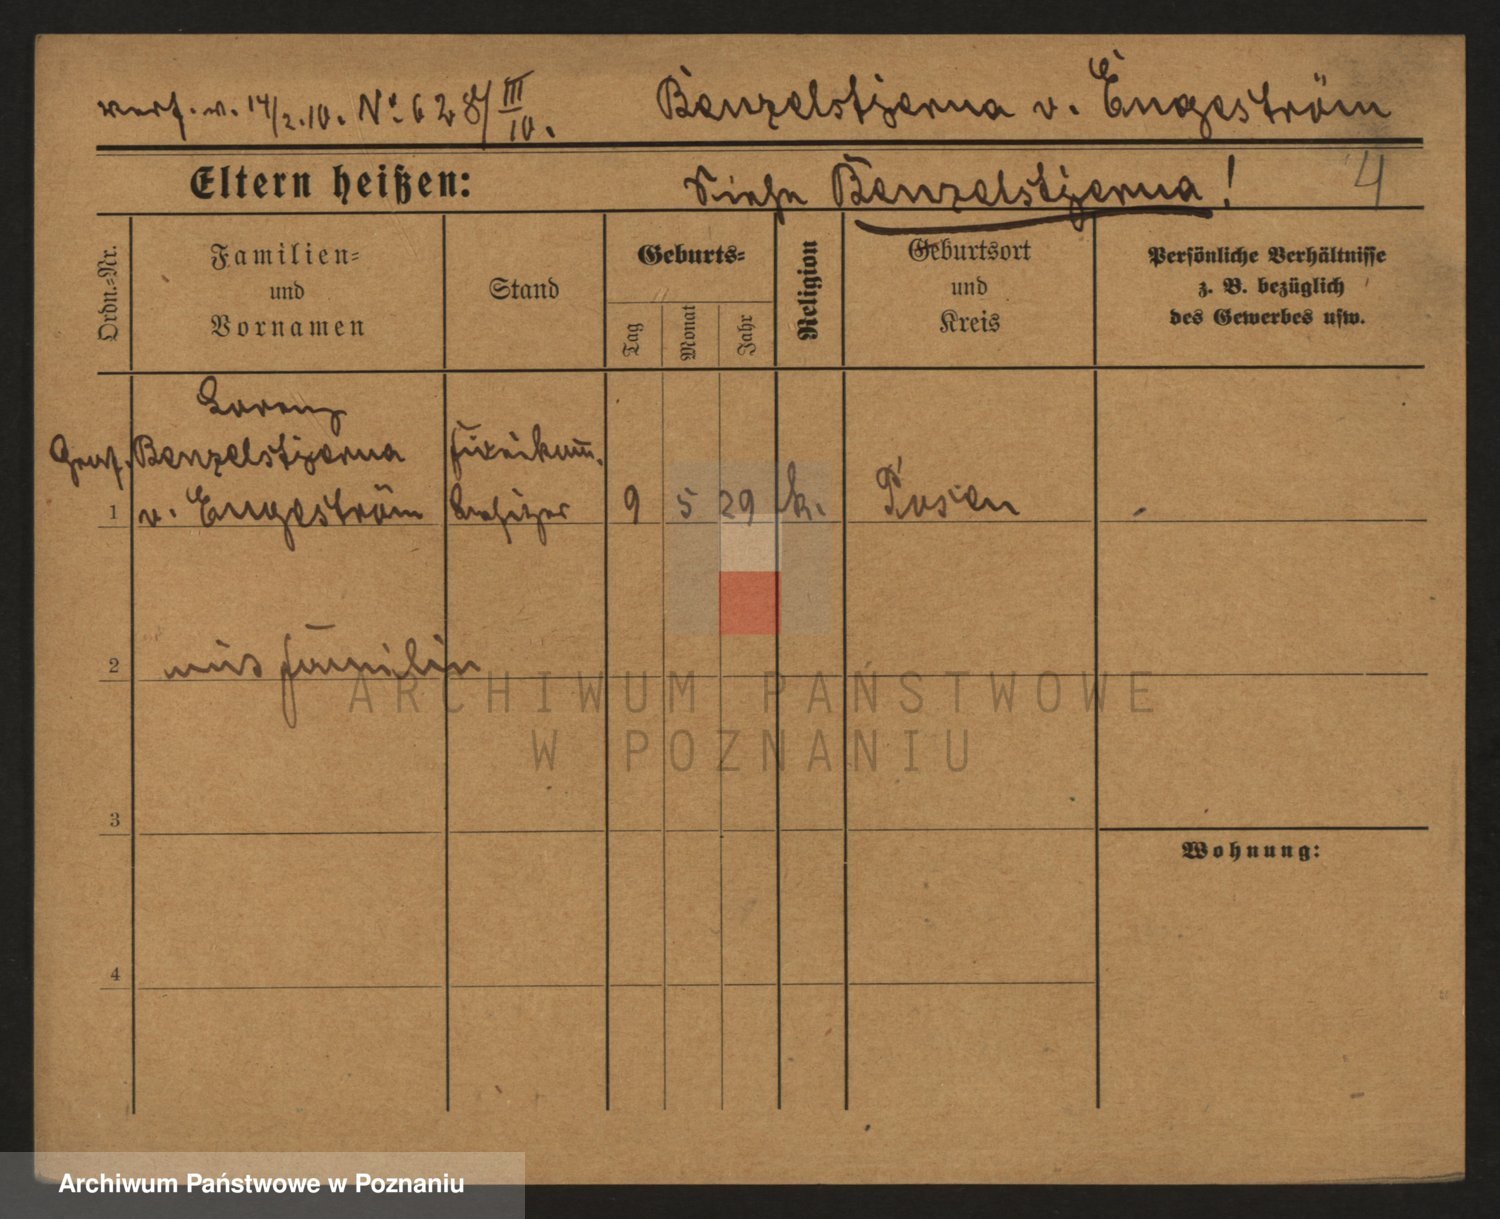 verf. v. 14/2.10. No. 628/III 10.
Benzelstjerna v. Engeström
Eltern heißen:
Siehe Benzelstjerna!
4
Ordn.-Nr.
Familien-
und
Vornamen
Stand
Geburts-
Tag
Monat
Jahr
Religion
Geburtsort
und
Kreis
Persönliche Verhältnisse
z. B. bezüglich
des Gewerbes usw.
Lorenz
Graf. Benzelstjerna
v. Engeström
Fideikom.
besitzer
1
9 5 29 k. Posen -
2
Familie
3
Wohnung:
4
ARCHIWUM PAŃSTWOWE
W POZNANIU
Archiwum Państwowe w Poznaniu